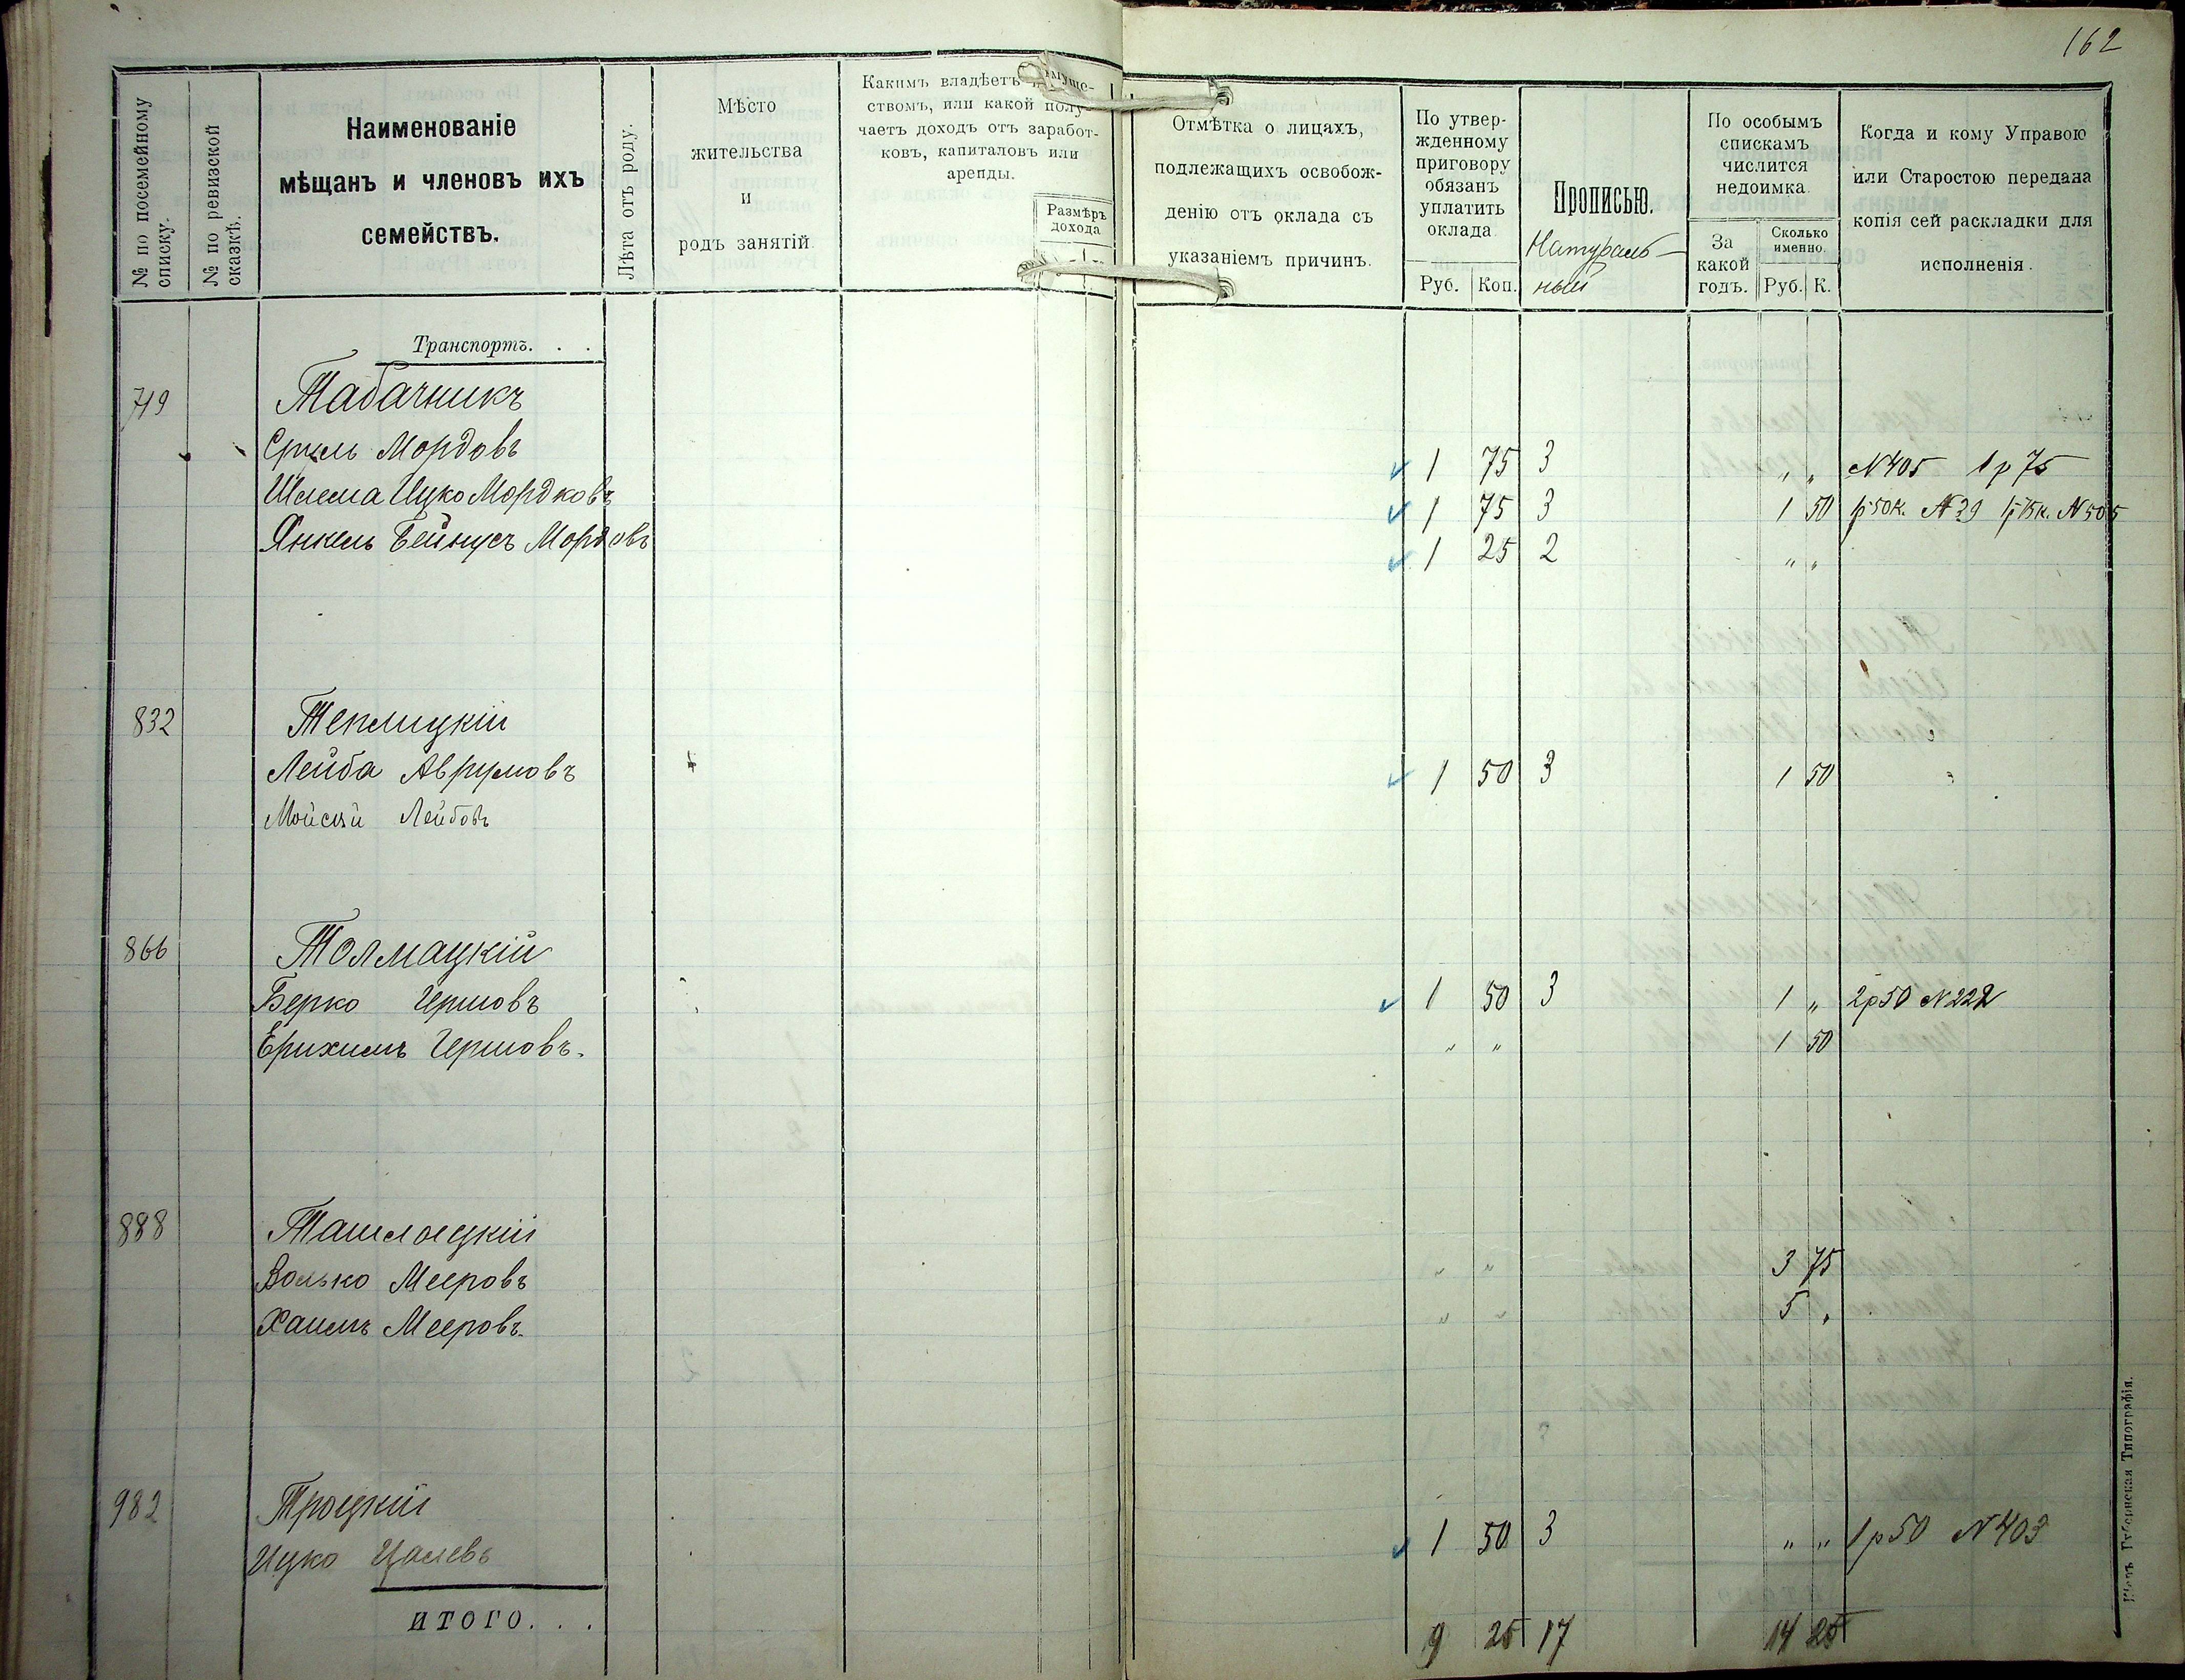 162
№ по посемейному списку.
№ по ревизской сказкѣ.
Наименованіе
мѣщанъ и членовъ ихъ
семействъ.
Лѣта отъ роду.
Мѣсто
жительства
и
родъ занятій
Какимъ владѣетъ имуще-
ствомъ, или какой полу-
чаетъ доходъ отъ заработ-
ковъ, капиталовъ или
аренды.
Размѣръ
дохода
Отмѣтка о лицахъ,
подлежащихъ освобож-
денію отъ оклада съ
указаніемъ причинъ.
По утвер-
жденному
приговору
обязанъ
уплатить
оклада
Руб. Коп.
Прописью.
Натураль-
ный
По особымъ
спискамъ
числится
недоимка.
За
какой
годъ.
Сколько
именно.
Руб. К.
Когда и кому Управою
или Старостою передана
копія сей раскладки для
исполненія.
Транспортъ. . .
719 Табачникъ
Сруль Мордовъ 1 75 3 " " №405 1р75
Шлема Ицко Мордковъ 1 75 3 1 50 1р50к. №39 1р75к. №505
Янкель Бейнусъ Мордовъ 1 25 2 " "
832 Теплицкій
Лейба Аврумовъ 1 50 3 1 50
Мойсей Лейбовъ
866 Толмацкій
Берко Гершовъ 1 50 3 1 " 2р50 №222
Ерихимъ Гершовъ. " " 1 50
888 Ташлыцкій
Волько Мееровъ " " 3 75
Хаимъ Мееровъ. " " 5 "
982 Троцкій
Ицко Цалевъ 1 50 3 " " 1р50 №403
ИТОГО. . . 9 25 17 14 25
Кіевъ Губернская Типографія.